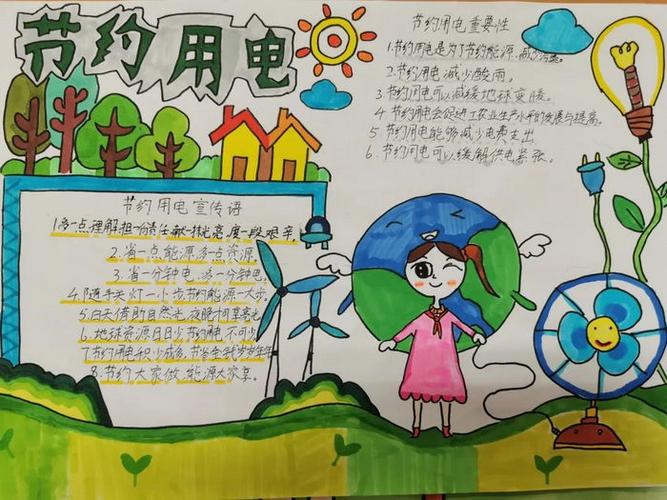 节约用电
节约用电重要性
1.节约用电是为了节约能源,减少污染。
2.节约用电减少酸雨。
3.节约用电可以减缓地球变暖。
4.节约用电会促进工农业生产水平的发展与提高。
5 节约用电能够减少电费支出
6.节约用电可以缓解供电紧张。
节约用电宣传语
1.多一点理解,担一份责任,献一抹光亮,度一段艰辛。
2.省一点能源,多一点资源。
3.省一分钟电,添一分钟电。
4.随手关灯一小步,节约能源一大步。
5.白天借助自然光,夜晚
6.地球资源日日少,节约用电不可少
7.节约用电积少成多,
8.节约大家做,能源大家享。